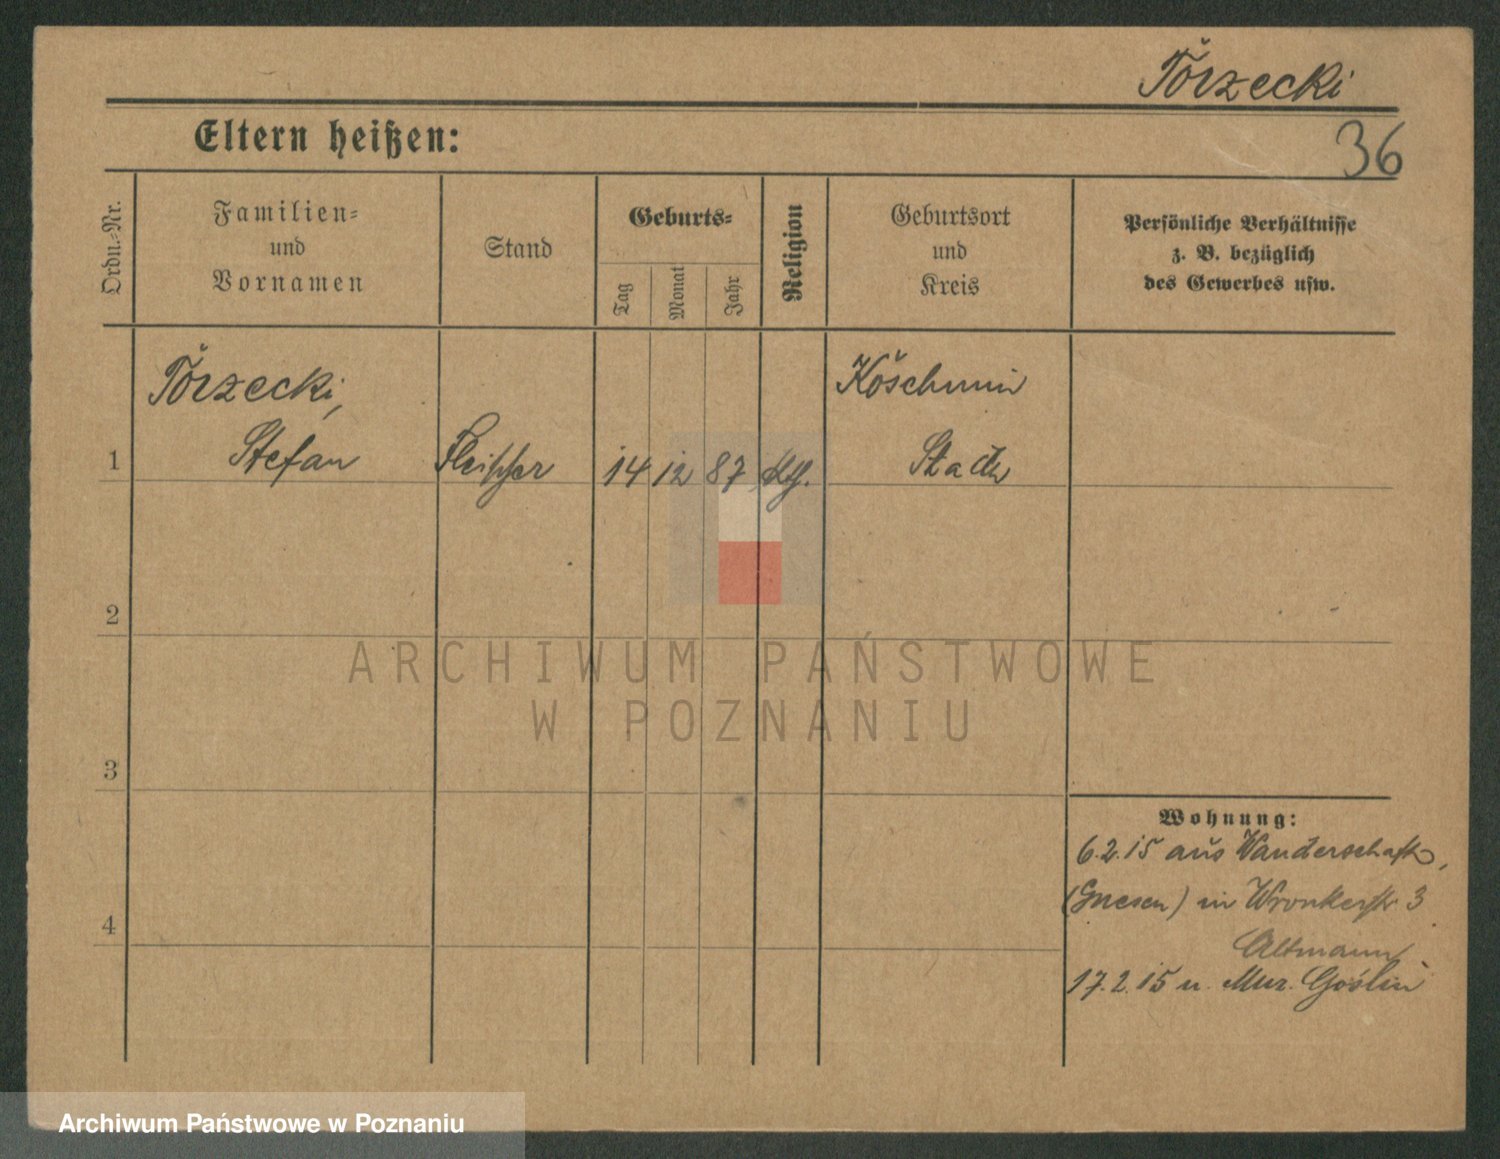 Törzecki
Eltern heißen:
36
Ordn.-Nr.
Familien-
und
Vornamen
Stand
Geburts-
Tag
Monat
Jahr
Religion
Geburtsort
und
Kreis
Persönliche Verhältnisse
z. B. bezüglich
des Gewerbes usw.
Törzecki,
Köschmin
1
Stefan
Fleischer
14
12
87
Kth.
Stadt
2
ARCHIWUM PAŃSTWOWE
W POZNANIU
3
Wohnung:
6.2.15 aus Wanderschaft,
(Gnesen) in Wronkerstr. 3
4
Altmann
17.2.15 n. Mur. Goslin
Archiwum Państwowe w Poznaniu